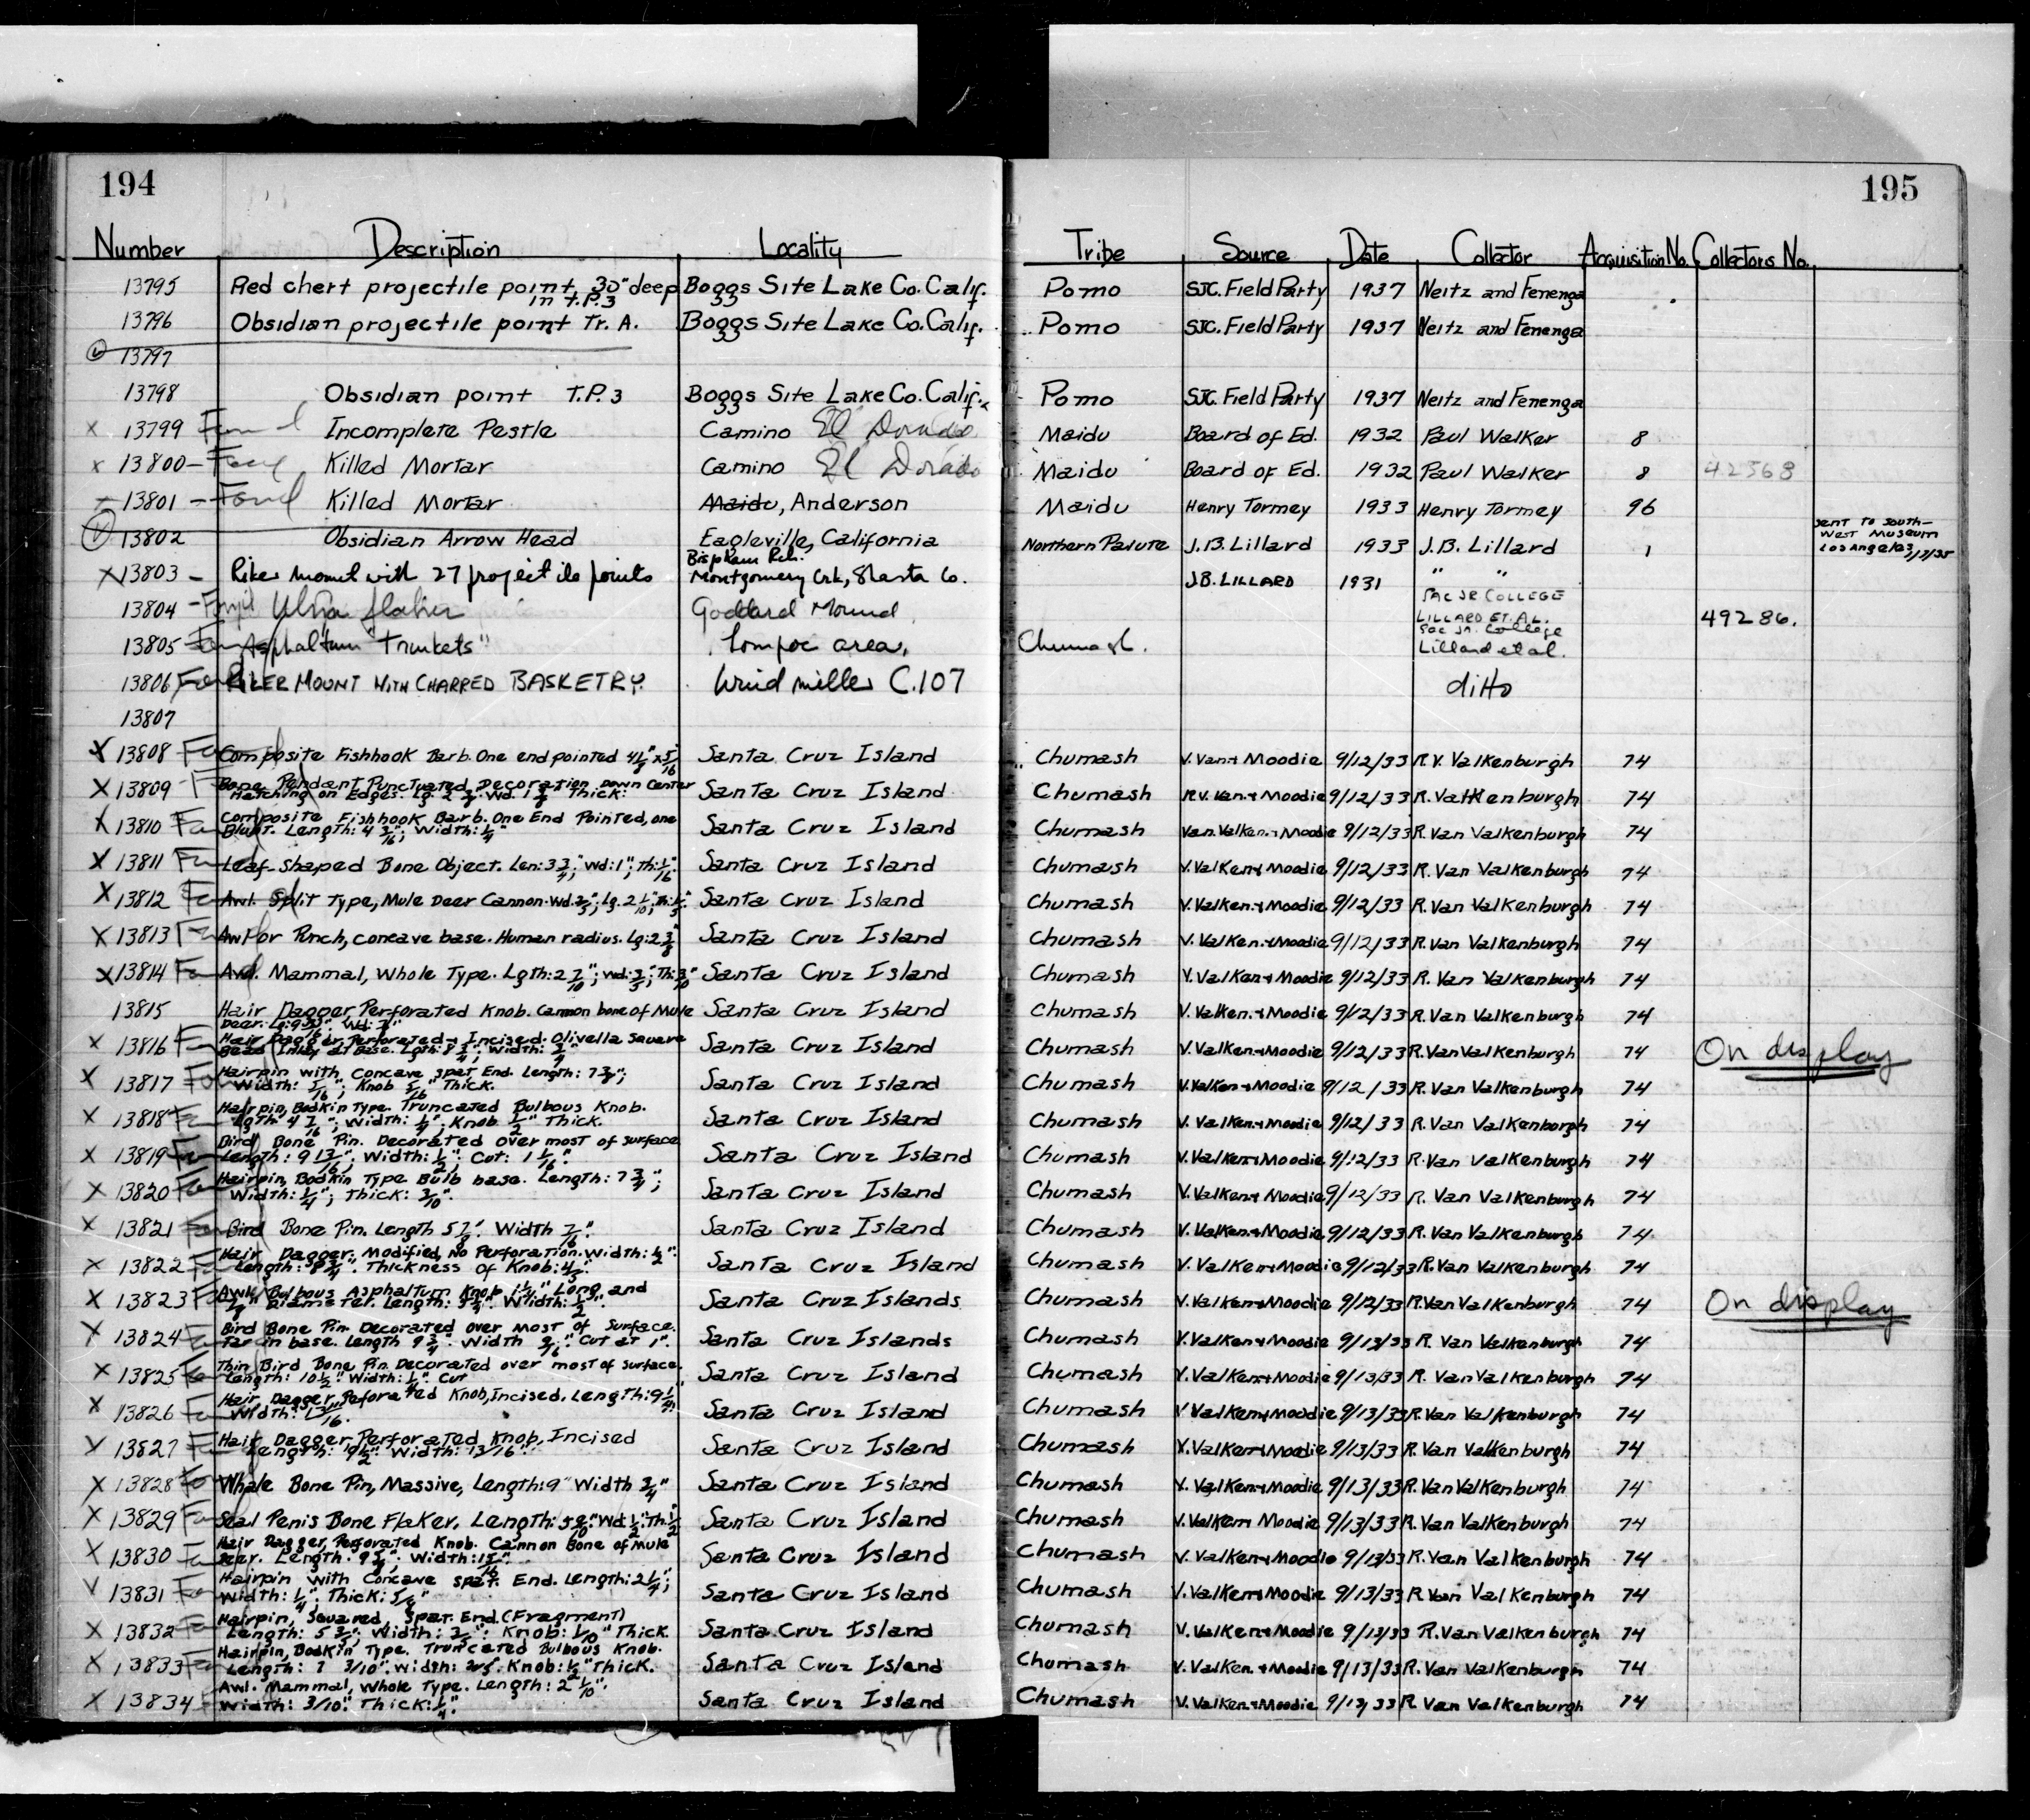 194
195
Number Description Locality Tribe Source Date Collector Acquisition No. Collectors No.
13795 Red chert projectile point, 30" deep in T.P.3 Boggs Site Lake Co. Calif. Pomo SJC. Field Party 1937 Neitz and Fenenga
13796 Obsidian projectile point Tr. A. Boggs Site Lake Co. Calif. Pomo SJC. Field Party 1937 Neitz and Fenenga
13797
13798 Obsidian point T.P. 3 Boggs Site Lake Co. Calif. Pomo SJC. Field Party 1937 Neitz and Fenenga
X 13799 Found Incomplete Pestle Camino El Dorado Maidu Board of Ed. 1932 Paul Walker 8
X 13800 - Killed Mortar Camino El Dorado Maidu Board of Ed. 1932 Paul Walker 8 42568
13801 - Found Killed Mortar Maidu, Anderson Maidu Henry Tormey 1933 Henry Tormey 96
13802 Obsidian Arrow Head Eagleville, California Northern Paiute J.B. Lillard 1933 J.B. Lillard 1 Sent to South-West Museum Los Angeles
X 13803 - Riker mount with 27 projectile points Montgomery Crk, Shasta Co. J.B. LILLARD 1931 " "
13804 Goddard Mound SAC JR COLLEGE LILLARD ET. AL. 49286.
13805 Asphaltum "Trinkets" Lompoc area. Chumash. Sac Jr. College Lillard et al.
13806 RIKER MOUNT WITH CHARRED BASKETRY. Windmiller C.107 ditto
13807
X 13808 Composite Fishhook Barb. One end pointed 4 1/8" x 5/16 Santa Cruz Island Chumash V. Van + Moodie 9/12/33 R.V. Valkenburgh 74
X 13809 Bone Pendant Punctuated Decoration Down Center Hatching on Edges. Santa Cruz Island Chumash R.V. Van. + Moodie 9/12/33 R. Valkenburgh 74
X 13810 Composite Fishhook Barb. One End Pointed, one Blunt. Length: 4 3/16"; Width: 1/4" Santa Cruz Island Chumash Van. Valken. + Moodie 9/12/33 R. Van Valkenburgh 74
X 13811 Leaf-Shaped Bone Object. Len: 3 3/4"; Wd: 1"; Th: 1/16" Santa Cruz Island Chumash V. Valken + Moodie 9/12/33 R. Van Valkenburgh 74
X 13812 Awl. Split Type, Mule Deer Cannon. Santa Cruz Island Chumash V. Valken. + Moodie 9/12/33 R. Van Valkenburgh 74
X 13813 Awl or Punch, concave base. Human radius. Santa Cruz Island Chumash V. Valken. + Moodie 9/12/33 R. Van Valkenburgh 74
X 13814 Awl. Mammal, Whole Type. Lgth: 2 7/10"; Santa Cruz Island Chumash V. Valken + Moodie 9/12/33 R. Van Valkenburgh 74
13815 Hair Dagger Perforated Knob. Cannon bone of Mule Deer. Santa Cruz Island Chumash V. Valken. + Moodie 9/12/33 R. Van Valkenburgh 74
X 13816 Hair Dagger, Perforated + Incised. Olivella Square Bead Inlay at Base. Santa Cruz Island Chumash V. Valken + Moodie 9/12/33 R. Van Valkenburgh 74 On display
X 13817 Hairpin with Concave spat End. Santa Cruz Island Chumash V. Valken + Moodie 9/12/33 R. Van Valkenburgh 74
X 13818 Hairpin, Bodkin Type. Truncated Bulbous Knob. Lgth 4 7/16"; Width: 1/4"; Knob 1/2" Thick. Santa Cruz Island Chumash V. Valken + Moodie 9/12/33 R. Van Valkenburgh 74
X 13819 Bird Bone Pin. Decorated over most of surface Length: 9 13/16"; Width: 1/2"; Cut: 1 1/16". Santa Cruz Island Chumash V. Valken + Moodie 9/12/33 R. Van Valkenburgh 74
X 13820 Hairpin, Bodkin Type Bulb base. Length: 7 3/4"; Width: 1/4"; Thick: 3/10". Santa Cruz Island Chumash V. Valken + Moodie 9/12/33 R. Van Valkenburgh 74
X 13821 Bird Bone Pin. Length 5 7/8". Width 7/16" Santa Cruz Island Chumash V. Valken + Moodie 9/12/33 R. Van Valkenburgh 74
X 13822 Hair Dagger. Modified, No Perforation. Width: 1/2". Length: 8 3/4". Thickness of Knob: 4/5". Santa Cruz Island Chumash V. Valken + Moodie 9/12/33 R. Van Valkenburgh 74
X 13823 Awl. Bulbous Asphaltum Knob Long, and Diameter. Santa Cruz Islands Chumash V. Valken + Moodie 9/12/33 R. Van Valkenburgh 74 On display
X 13824 Bird Bone Pin. Decorated over most of surface. Tar on base. Length 9 3/4". Width 9/16". Cut at 1". Santa Cruz Islands Chumash V. Valken + Moodie 9/13/33 R. Van Valkenburgh 74
X 13825 Thin Bird Bone Pin Decorated over most of surface. Length: 10 1/2" Width: 1/4" Cut Santa Cruz Island Chumash V. Valken + Moodie 9/13/33 R. Van Valkenburgh 74
X 13826 Hair Dagger Perforated Knob, Incised. Length: 9 1/4" Width: 13/16". Santa Cruz Island Chumash V Valken + Moodie 9/13/33 R. Van Valkenburgh 74
X 13827 Hair Dagger, Perforated Knob, Incised Length: 9 1/2" Width: 13/16". Santa Cruz Island Chumash V. Valken + Moodie 9/13/33 R. Van Valkenburgh 74
X 13828 Whale Bone Pin, Massive, Length: 9" Width 3/4" Santa Cruz Island Chumash V. Valken + Moodie 9/13/33 R. Van Valkenburgh 74
X 13829 Seal Penis Bone Flaker. Santa Cruz Island Chumash V. Valken Moodie 9/13/33 R. Van Valkenburgh 74
X 13830 Hair Dagger, Perforated Knob. Cannon Bone of Mule Deer. Santa Cruz Island Chumash V. Valken + Moodie 9/13/33 R. Van Valkenburgh 74
13831 Hairpin with Concave spat. End. Length: 2 1/4"; Width: 1/4"; Santa Cruz Island Chumash V. Valken + Moodie 9/13/33 R. Van Valkenburgh 74
X 13832 Hairpin, Squared, Spat. End. (Fragment) Santa Cruz Island Chumash V. Valken + Moodie 9/13/33 R. Van Valkenburgh 74
X 13833 Hairpin, Bodkin Type. Truncated Bulbous Knob. Santa Cruz Island Chumash V. Valken. + Moodie 9/13/33 R. Van Valkenburgh 74
X 13834 Awl. Mammal, Whole Type. Length: 2 1/10". Width: 3/10". Thick: 1/4". Santa Cruz Island Chumash V. Valken. + Moodie R. Van Valkenburgh 74